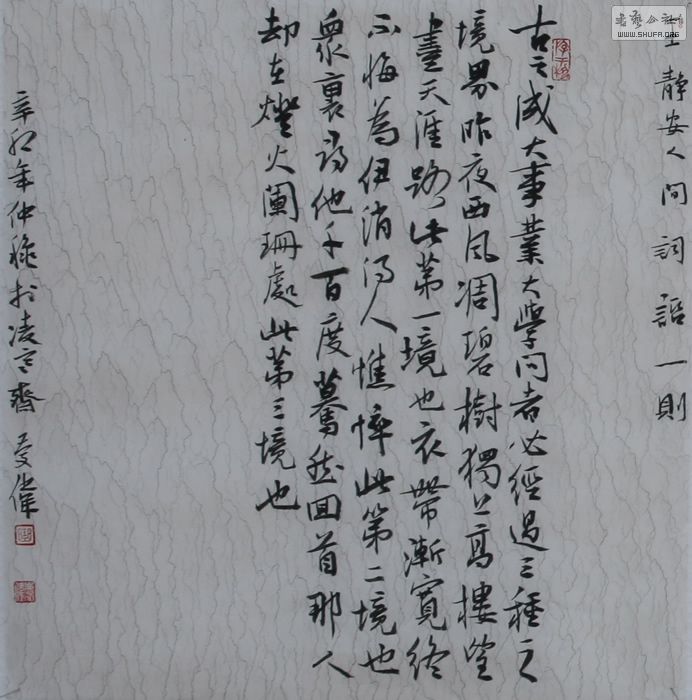 書藝公社
WWW.SHUFA.ORG
王靜安人间詞話一則
古之成大事業大學问者必經過三種之
境界昨夜西风凋碧樹獨上高樓望
盡天涯路此第一境也衣帶漸寬終
不悔為伊消得人憔悴此第二境也
衆裏尋他千百度驀然回首那人
却在燈火闌珊處此第三境也
辛卯年仲秋於凌云齋